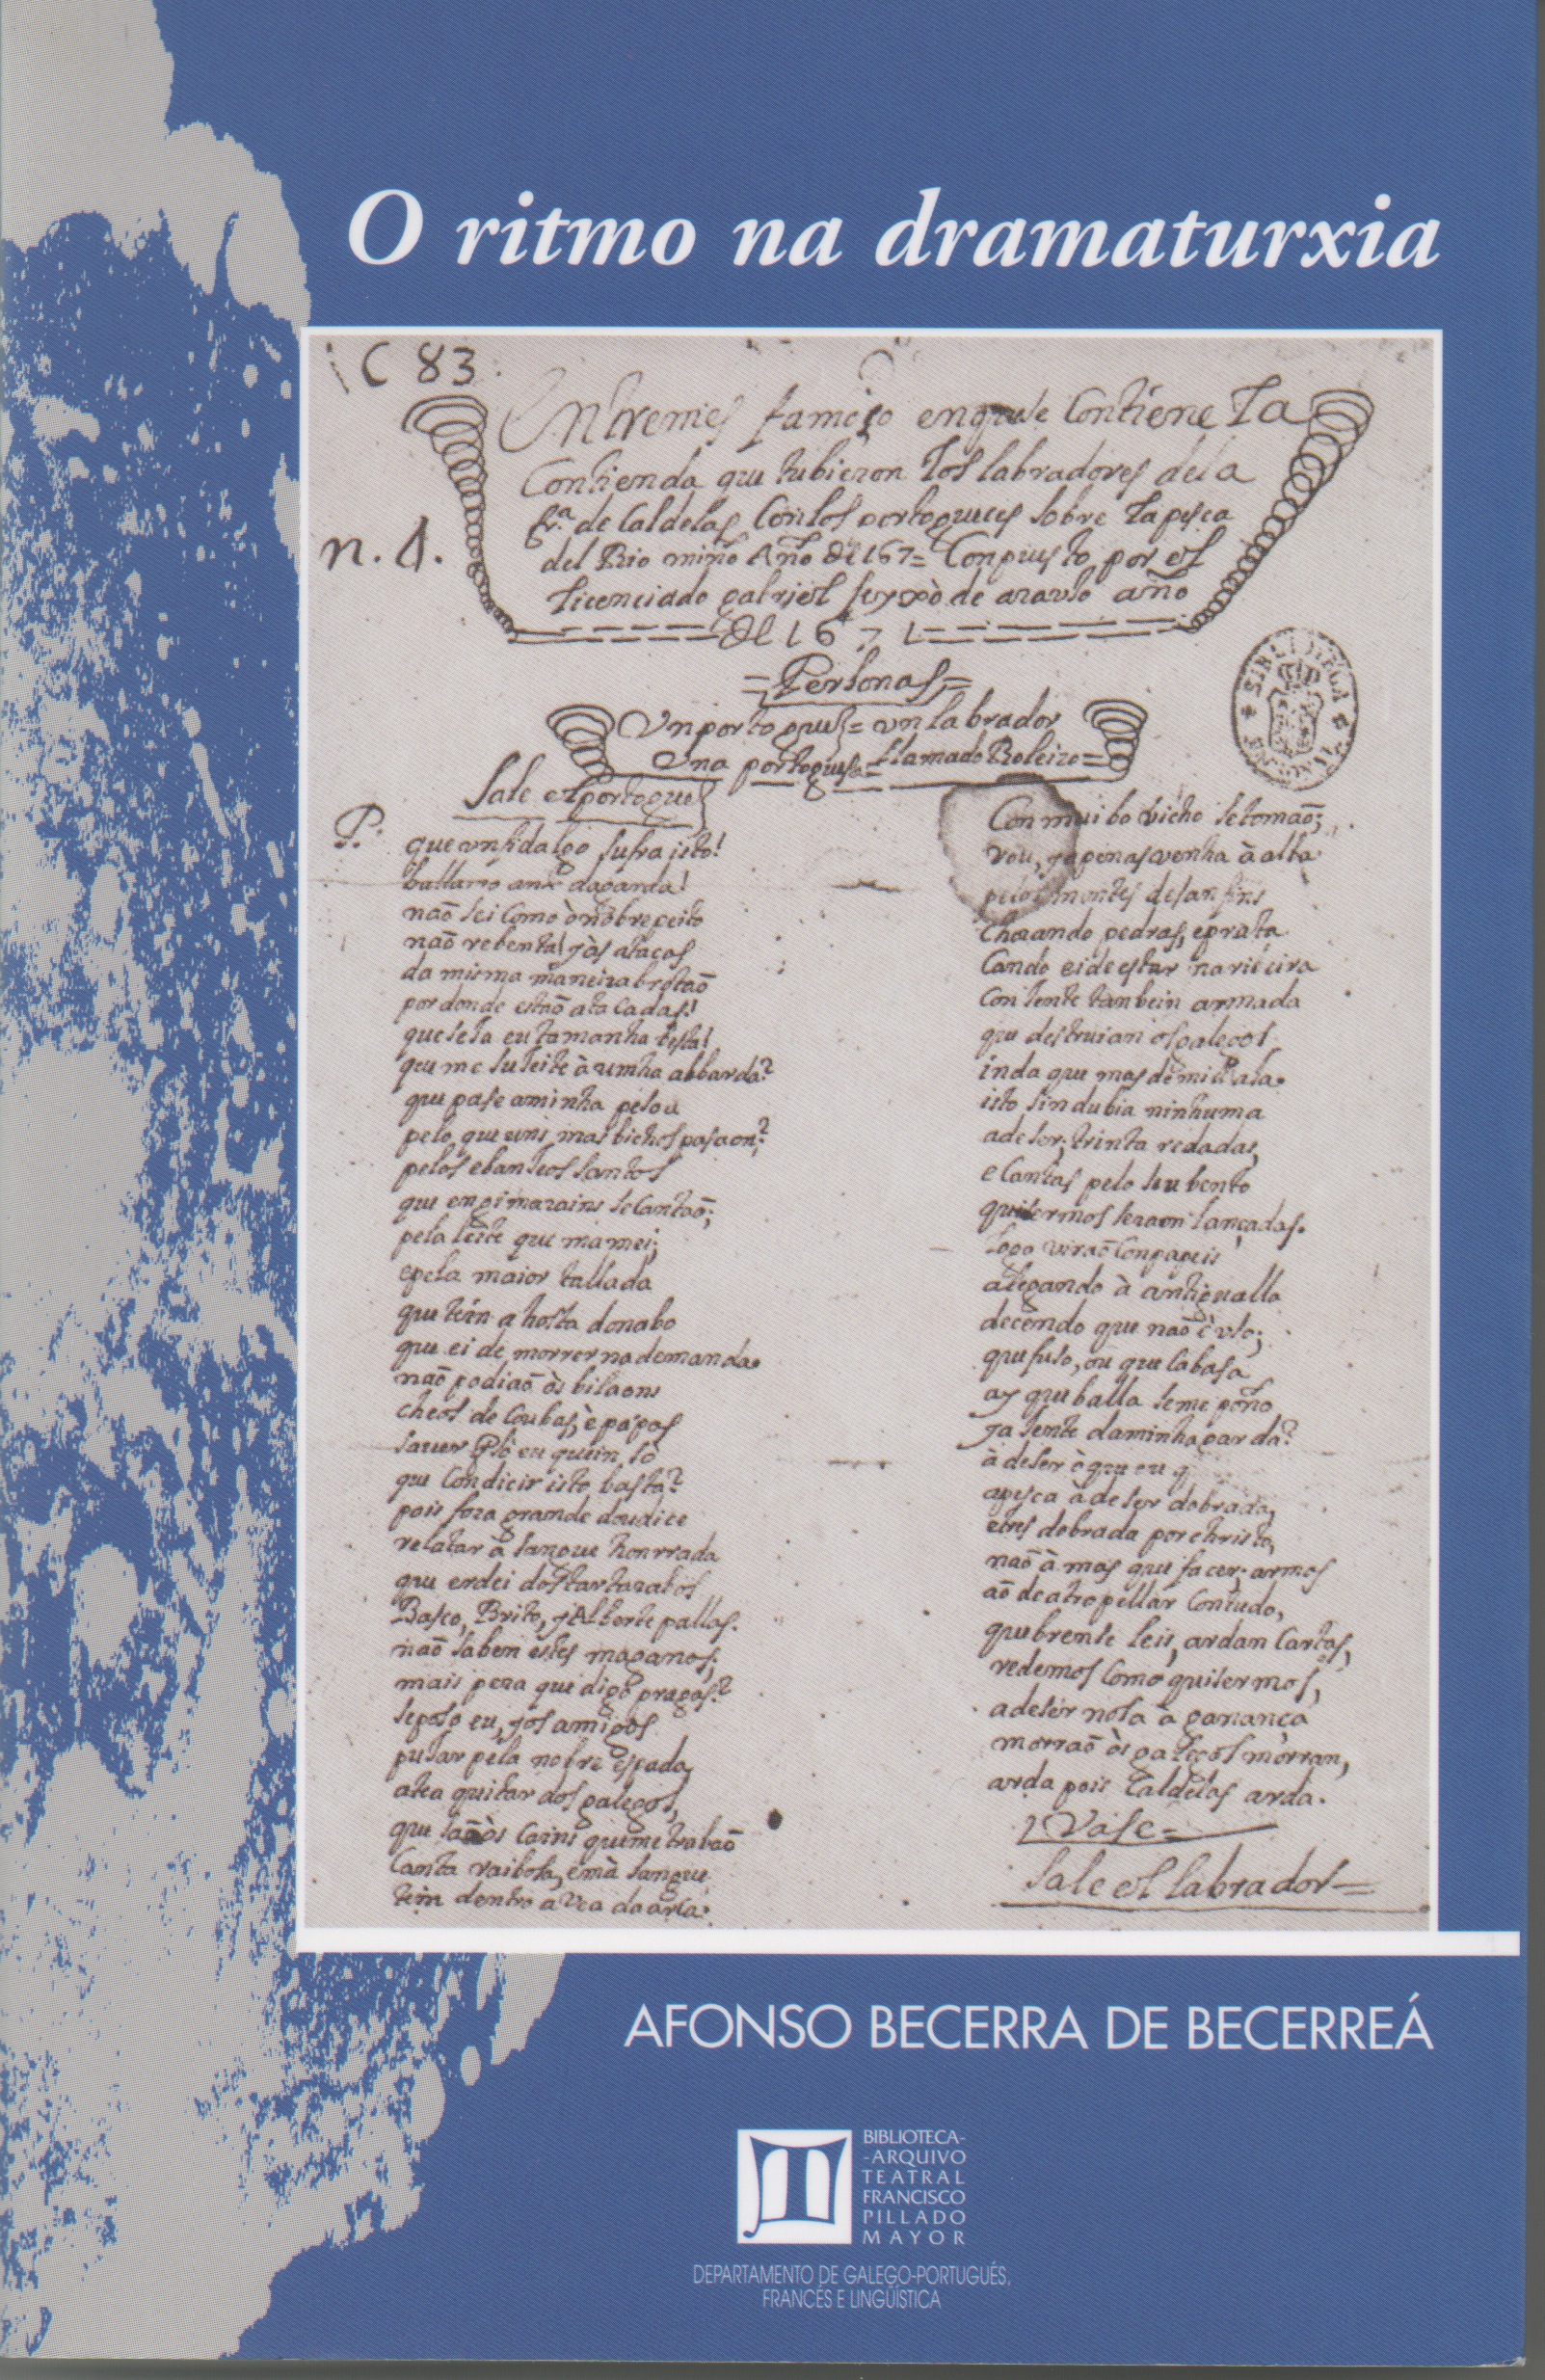 O ritmo na dramaturxia
C 83
Entremes famoso enque Contiene La
Contienda que tubieron Los labradores dela
fra. de Caldelas Con los portogueses sobre La pesca
n. 4.
del Rio miño Año de 167= Conpuesto por el
Licenciado gabriel feyxò de araulo año
de 1671
=Personas=
Un portogues= un labrador
Una portoguesa= Llamado Roleizo=
Sale el portogues
P.
que un fidalgo sufra isto!
não sei como ò nobre peito
não rebenta! y às atacas
da misma maneira brotaõ
por donde estaõ atacadas!
que seta eu tamanha besta!
que me suleite à umha albarda?
que pase a minha
pelo que uns mas bichos pasaon?
pelos santos
que en gimarains se Cantaõ;
pela leite que mamei;
e pela maior tallada
que tein a hosta do nabo
que ei de morrer na demanda.
não podiaõ òs bilaons
cheos de Coubas, è papas
saver Pº sò eu quein sò
que Con dicir isto basta?
pois fora grande doudice
relatar à sangue honrrada
que erdei dos tartarabos
Basco, Brito, y Alborte pallas.
não saben estes maganos;
mais pera que digo pragas?
se poso eu, y os amigos
puxar pela nobre espada
atea quitar dos galegos,
que saõ òs Coins que me trabaõ
Canta raibosa, e mà sangue
tein dentro a vea da arca.
Con mui bo bicho se tomaõ;
vou, y apenas venha à alba
pelos montes de san fins
Chorando pedras, e prata
Cando ei de estar na ribeira
Con sente tanbein armada
que destruian os galegos
inda que mas de mil aja.
isto sin dubia ninhuma
a de ser; trinta redadas,
e Cantas pelo seu bento
quisermos seraon lançadas.
Logo viraõ Con papeis
alegando à antigualla
decendo que naõ è uso;
que fuso, ou que labasa
ay que balla se me poño
ja sente da minha parda?
à de ser ò que eu q
a pesca à de ser dobrada,
e tres dobrada por christo,
naõ à mas que facer; armos
aõ de atropellar Contudo,
quebrense leis, ardan Cartas,
redemos Como quisermos,
a de ser nosa a ganança
morraõ òs galegos morran,
arda pois Caldelas arda.
Vase=
Sale el labrador=
AFONSO BECERRA DE BECERREÁ
BIBLIOTECA-
-ARQUIVO
TEATRAL
FRANCISCO
PILLADO
MAYOR
DEPARTAMENTO DE GALEGO-PORTUGUÉS,
FRANCÉS E LINGÜÍSTICA